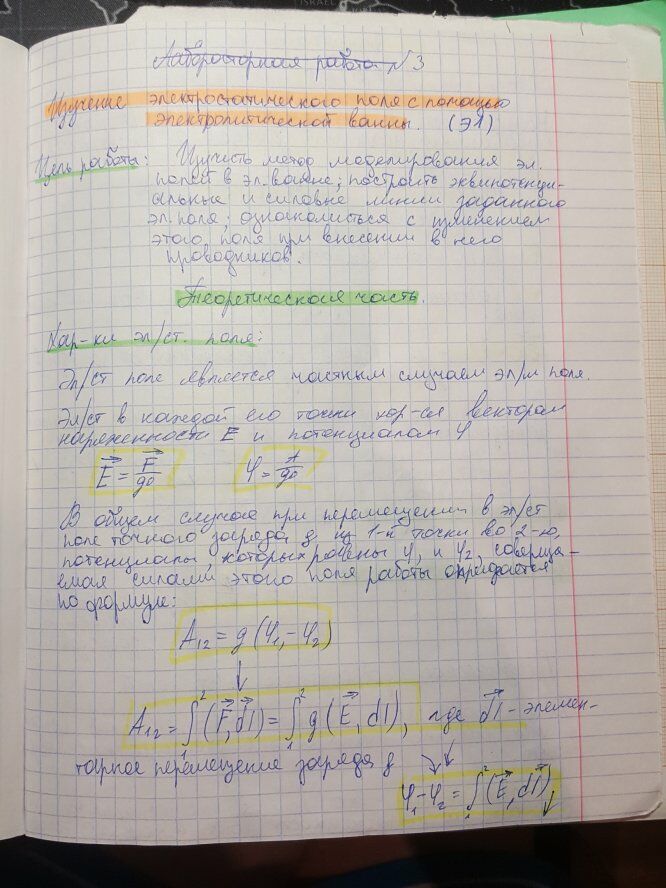 Лабораторная работа №3
Изучение электростатического поля с помощью
электролитической ванны. (Э1)
Цель работы: Изучить метод моделирования эл.
полей в эл.ванне; построить эквипотенци-
альные и силовые линии заданного
эл.поля; ознакомиться с изменением
этого поля при внесении в него
проводников.
Теоретическая часть.
Хар-ки эл/ст. поля:
Эл/ст поле является частным случаем эл/м поля.
Эл/ст в каждой его точки хар-ся вектором
напряженности E и потенциалом φ
E⃗ = F⃗/q₀ φ = A/q₀
В общем случае при перемещении в эл/ст
поле точного заряда q из 1-й точки во 2-ю,
потенциалы, которых равены φ₁ и φ₂, соверша-
емая силами этого поля работы определяется
по формуле:
A₁₂ = q(φ₁-φ₂)
↓
A₁₂ = ₁∫²(F⃗, dl⃗) = ₁∫² q(E⃗, dl), где dl⃗ - элемен-
тарное перемещение заряда q
φ₁-φ₂ = ₁∫²(E⃗, dl⃗)